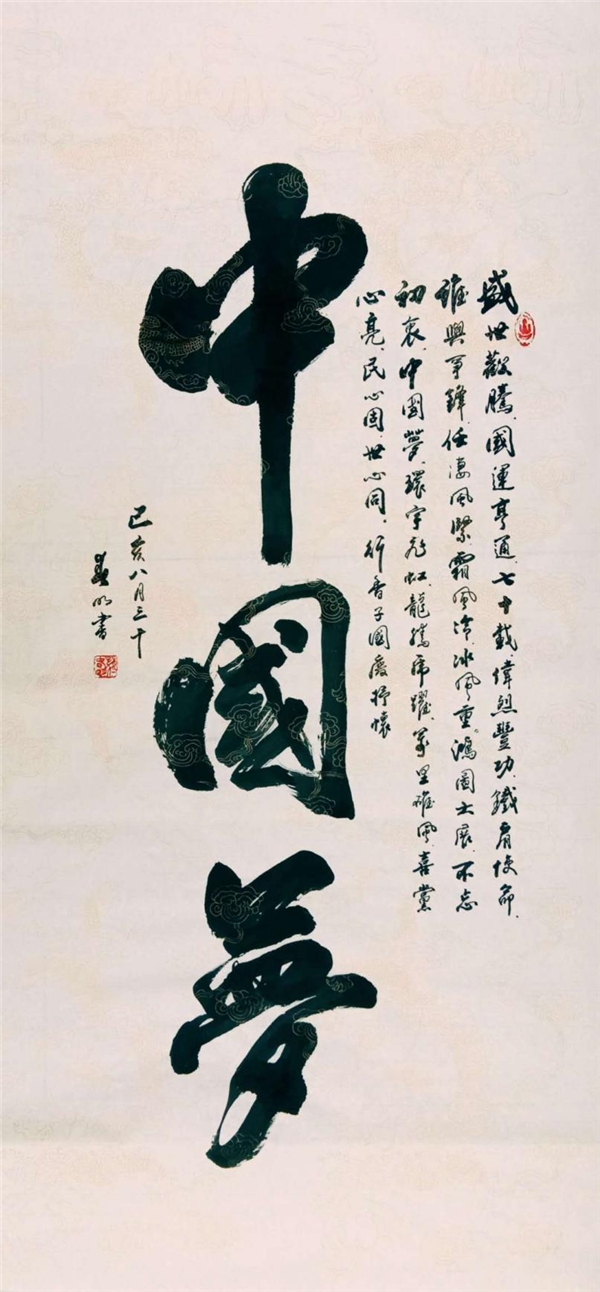 盛世歡騰、國運亨通、七十載、偉烈豐功、鐵肩使命、
誰與爭鋒、任淒風緊、霜風冷、冰風重。鴻圖大展、不忘
初衷、中國夢、環宇虹、龍騰虎躍、萬里雄風、喜黨
心亮、民心固、世心同。行香子國慶抒懷
中國夢
己亥八月三十
明書